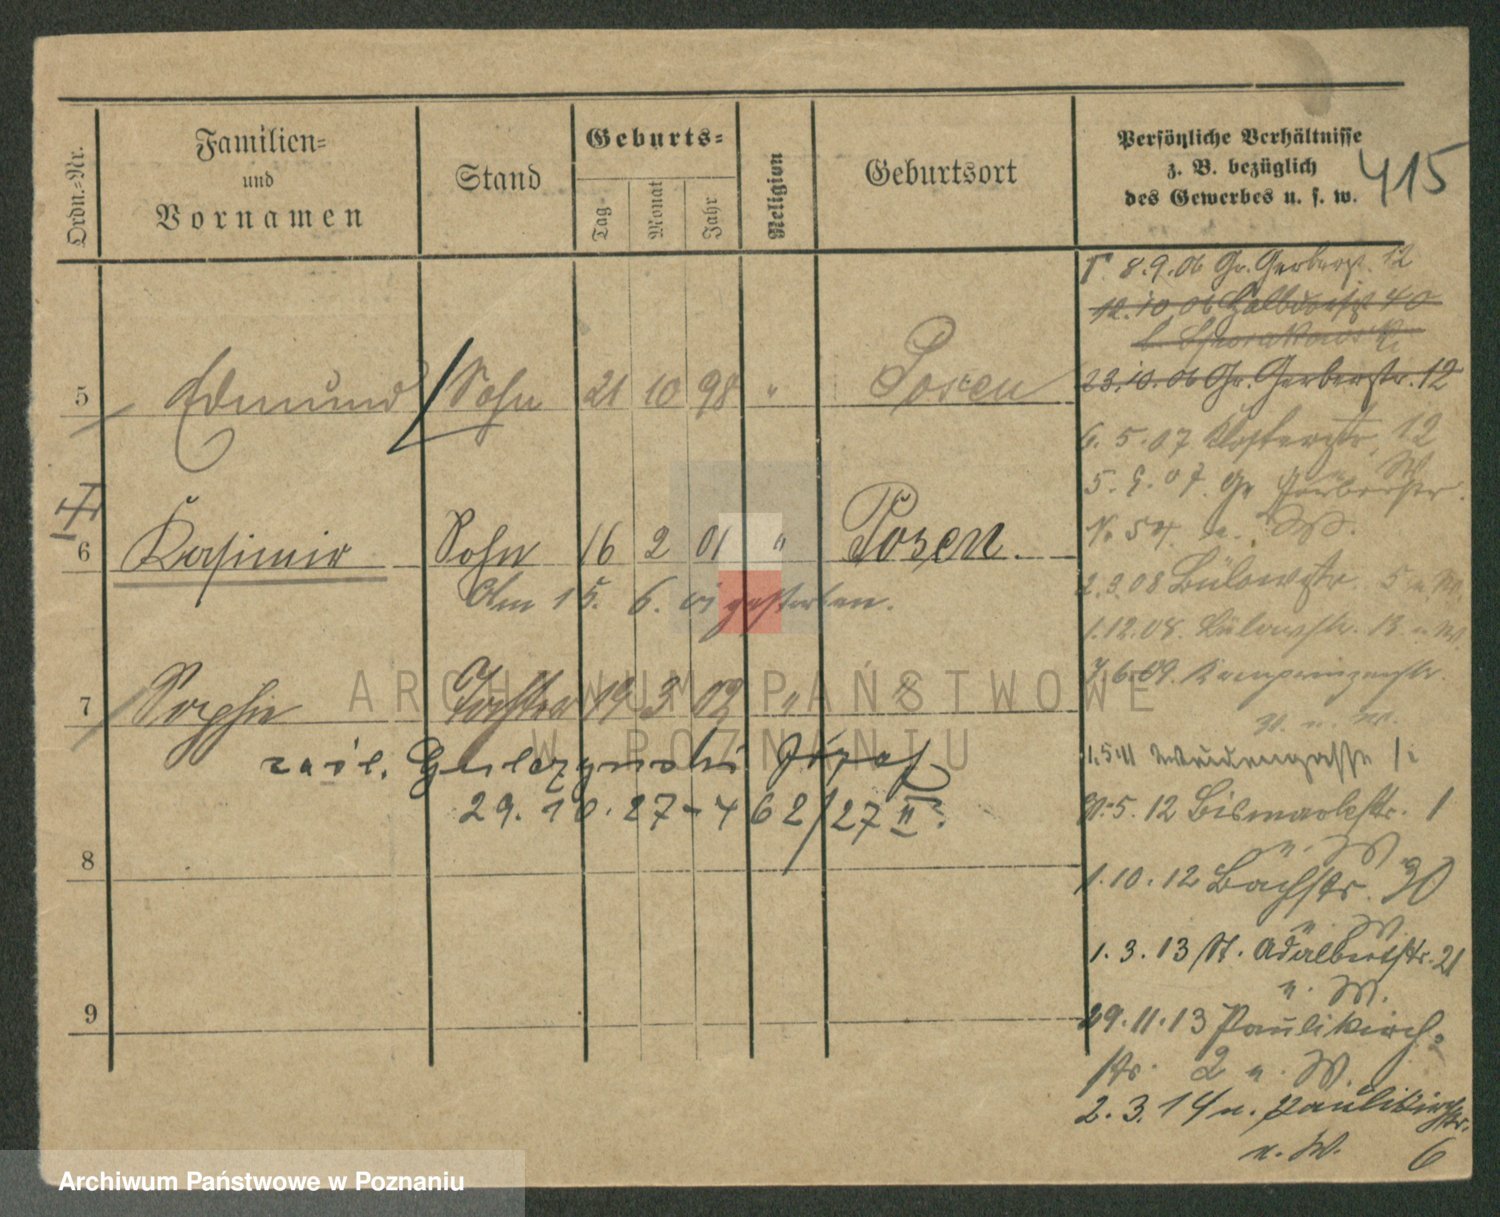 Ordn.=Nr.
Familien=
und
Vornamen
Stand
Geburts=
Tag
Monat
Jahr
Religion
Geburtsort
Persönliche Verhältnisse
z. B. bezüglich
des Gewerbes u. s. w.
415
8.9.06 Gr. Gerberstr. 12
12.10.06 Halbdorfstr 40
23.10.06 Gr. Gerberstr. 12
5 Edmund Sohn 21 10 98 " Posen
6.5.07 Klosterstr. 12
5.9.07. Gr Gerberstr.
No 54. u. W.
6 Kasimir Sohn 16 2 01 " Posen.
Am 15. 6. 01 gestorben.
2.3.08 Bülowstr. 5 u. W.
1.12.08. Bülowstr. 13 u W.
7 Sophie Tochter 19 3 02 " "
7.6.09.
u. W.
ARCHIWUM PAŃSTWOWE
W POZNANIU
Józef
29. 10. 27 - 462/27 II.
Weidengasse
30.5.12 Bismarckstr. 1
u. W
8
1.10.12 Bachstr. 30
u. W.
1.3.13 St. Adalbertstr. 21
u. W.
9
29.11.13 Paulikirch=
str. 2 u. W.
2.3.14 n. Paulikirchstr.
u. W. 6
Archiwum Państwowe w Poznaniu